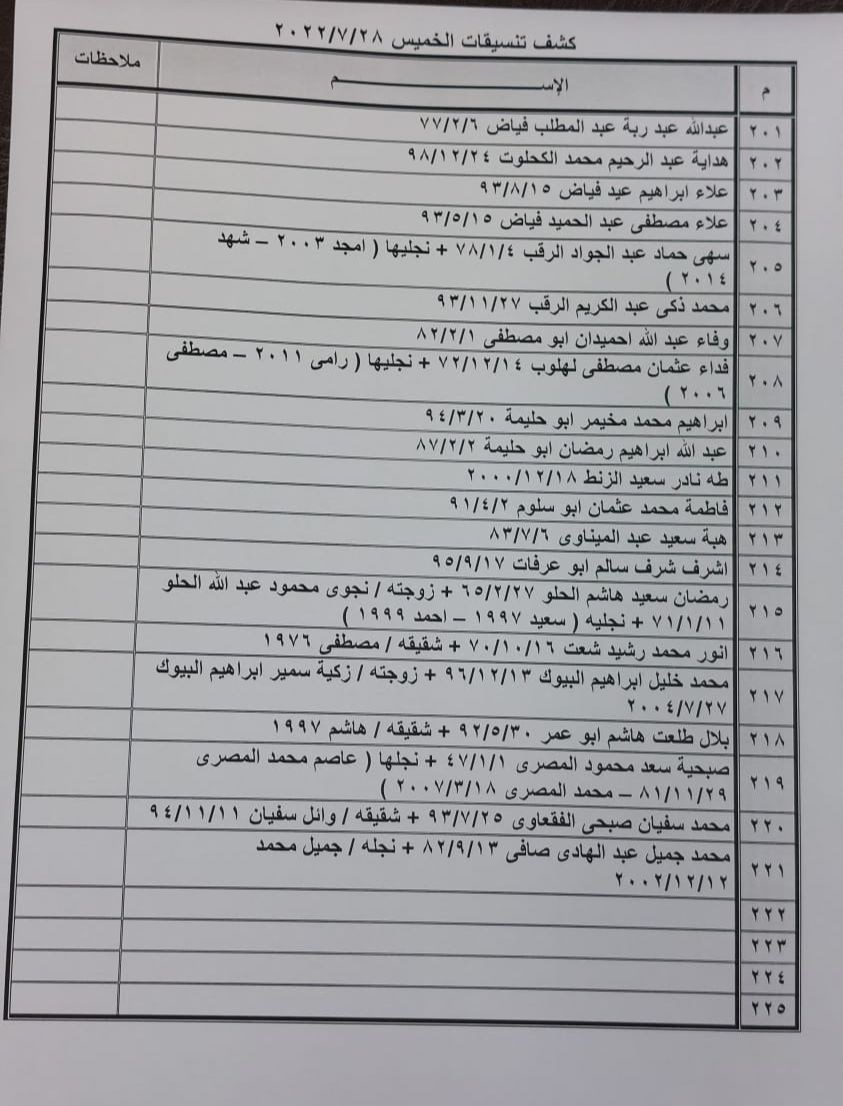 كشف تنسيقات الخميس ٢٠٢٢/٧/٢٨
م الإســــــم ملاحظات
٢٠١ عبدالله عبد ربة عبد المطلب فياض ٧٧/٢/٦
٢٠٢ هداية عبد الرحيم محمد الكحلوت ٩٨/١٢/٢٤
٢٠٣ علاء ابراهيم عيد فياض ٩٣/٨/١٥
٢٠٤ علاء مصطفى عبد الحميد فياض ٩٣/٥/١٥
٢٠٥ سهى حماد عبد الجواد الرقب ٧٨/١/٤ + نجليها ( امجد ٢٠٠٣ – شهد
٢٠١٤ )
٢٠٦ محمد ذكى عبد الكريم الرقب ٩٣/١١/٢٧
٢٠٧ وفاء عبد الله احميدان ابو مصطفى ٨٢/٢/١
٢٠٨ فداء عثمان مصطفى لهلوب ٧٢/١٢/١٤ + نجليها ( رامى ٢٠١١ – مصطفى
٢٠٠٦ )
٢٠٩ ابراهيم محمد مخيمر ابو حليمة ٩٤/٣/٢٠
٢١٠ عبد الله ابراهيم رمضان ابو حليمة ٨٧/٢/٢
٢١١ طه نادر سعيد الزنط ٢٠٠٠/١٢/١٨
٢١٢ فاطمة محمد عثمان ابو سلوم ٩١/٤/٢
٢١٣ هبة سعيد عبد الميناوى ٨٣/٧/٦
٢١٤ اشرف شرف سالم ابو عرفات ٩٥/٩/١٧
٢١٥ رمضان سعيد هاشم الحلو ٦٥/٢/٢٧ + زوجته / نجوى محمود عبد الله الحلو
٧١/١/١١ + نجليه ( سعيد ١٩٩٧ – احمد ١٩٩٩ )
٢١٦ انور محمد رشيد شعت ٧٠/١٠/١٦ + شقيقه / مصطفى ١٩٧٦
٢١٧ محمد خليل ابراهيم البيوك ٩٦/١٢/١٣ + زوجته / زكية سمير ابراهيم البيوك
٢٠٠٤/٧/٢٧
٢١٨ بلال طلعت هاشم ابو عمر ٩٢/٥/٣٠ + شقيقه / هاشم ١٩٩٧
٢١٩ صبحية سعد محمود المصرى ٤٧/١/١ + نجلها ( عاصم محمد المصرى
٨١/١١/٢٩ – محمد المصرى ٢٠٠٧/٣/١٨ )
٢٢٠ محمد سفيان صبحى الفقعاوى ٩٣/٧/٢٥ + شقيقه / وائل سفيان ٩٤/١١/١١
٢٢١ محمد جميل عبد الهادى صافى ٨٢/٩/١٣ + نجله / جميل محمد
٢٠٠٢/١٢/١٢
٢٢٢
٢٢٣
٢٢٤
٢٢٥